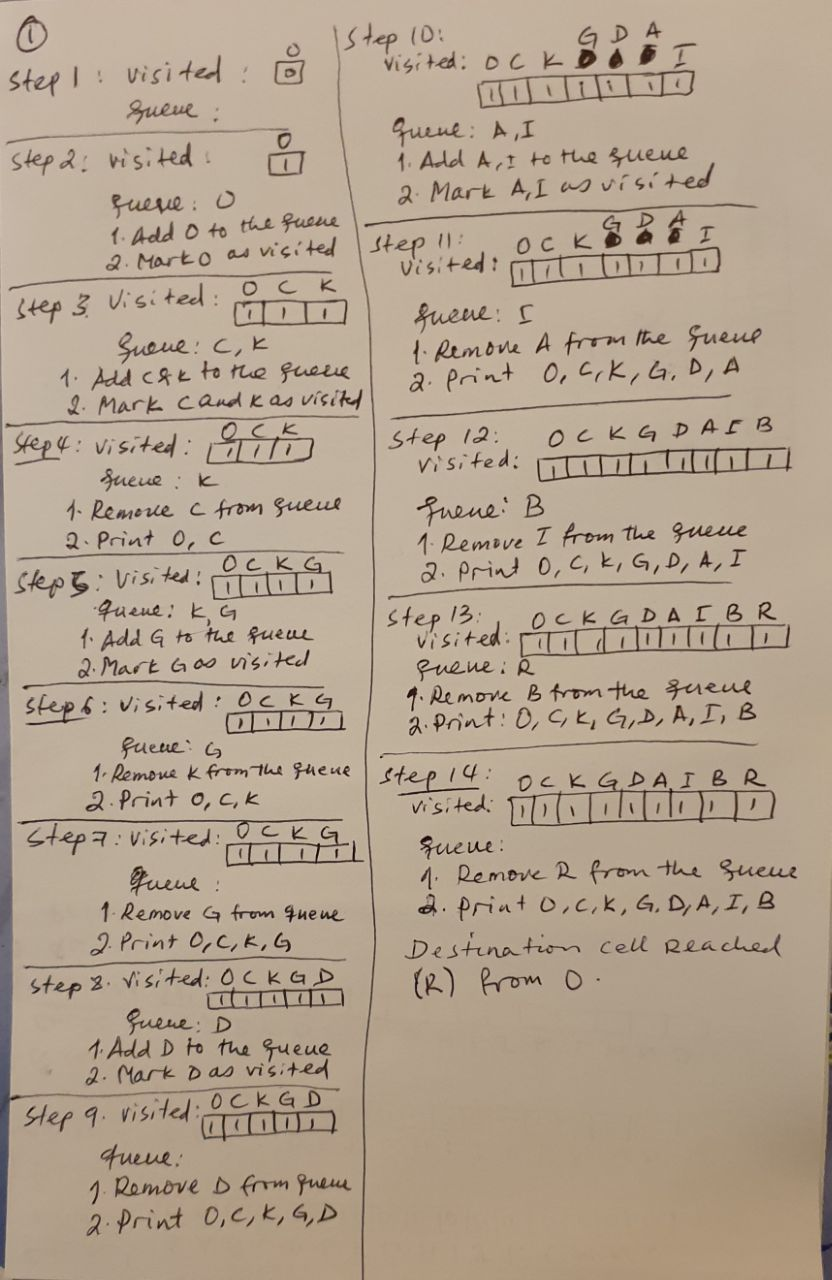 ①
O
Step 1: visited: 0
Queue:
O
Step 2: visited: 1
Queue: O
1. Add O to the Queue
2. Mark O as visited
O C K
Step 3 Visited: 1 1 1
Queue: C, K
1. Add C & K to the Queue
2. Mark C and K as visited
O C K
Step 4: visited: 1 1 1
Queue: K
1. Remove C from Queue
2. Print O, C
O C K G
Step 5: Visited: 1 1 1 1
Queue: K, G
1. Add G to the Queue
2. Mark G as visited
O C K G
Step 6: Visited: 1 1 1 1
Queue: G
1. Remove K from the Queue
2. Print O, C, K
O C K G
Step 7: Visited: 1 1 1 1
Queue:
1. Remove G from Queue
2. Print O, C, K, G
O C K G D
Step 8. Visited: 1 1 1 1 1
Queue: D
1. Add D to the Queue
2. Mark D as visited
O C K G D
Step 9. Visited: 1 1 1 1 1
Queue:
1. Remove D from Queue
2. Print O, C, K, G, D
Step 10: G D A
Visited: O C K I
1 1 1 1 1 1 1
Queue: A, I
1. Add A, I to the Queue
2. Mark A, I as visited
G D A
Step 11: O C K I
Visited: 1 1 1 1 1 1 1
Queue: I
1. Remove A from the Queue
2. Print O, C, K, G, D, A
Step 12: O C K G D A I B
Visited: 1 1 1 1 1 1 1 1
Queue: B
1. Remove I from the Queue
2. Print O, C, K, G, D, A, I
Step 13: O C K G D A I B R
Visited: 1 1 1 1 1 1 1 1 1
Queue: R
1. Remove B from the Queue
2. Print: O, C, K, G, D, A, I, B
Step 14: O C K G D A I B R
Visited: 1 1 1 1 1 1 1 1 1
Queue:
1. Remove R from the Queue
2. Print O, C, K, G, D, A, I, B
Destination cell Reached
(R) from O.